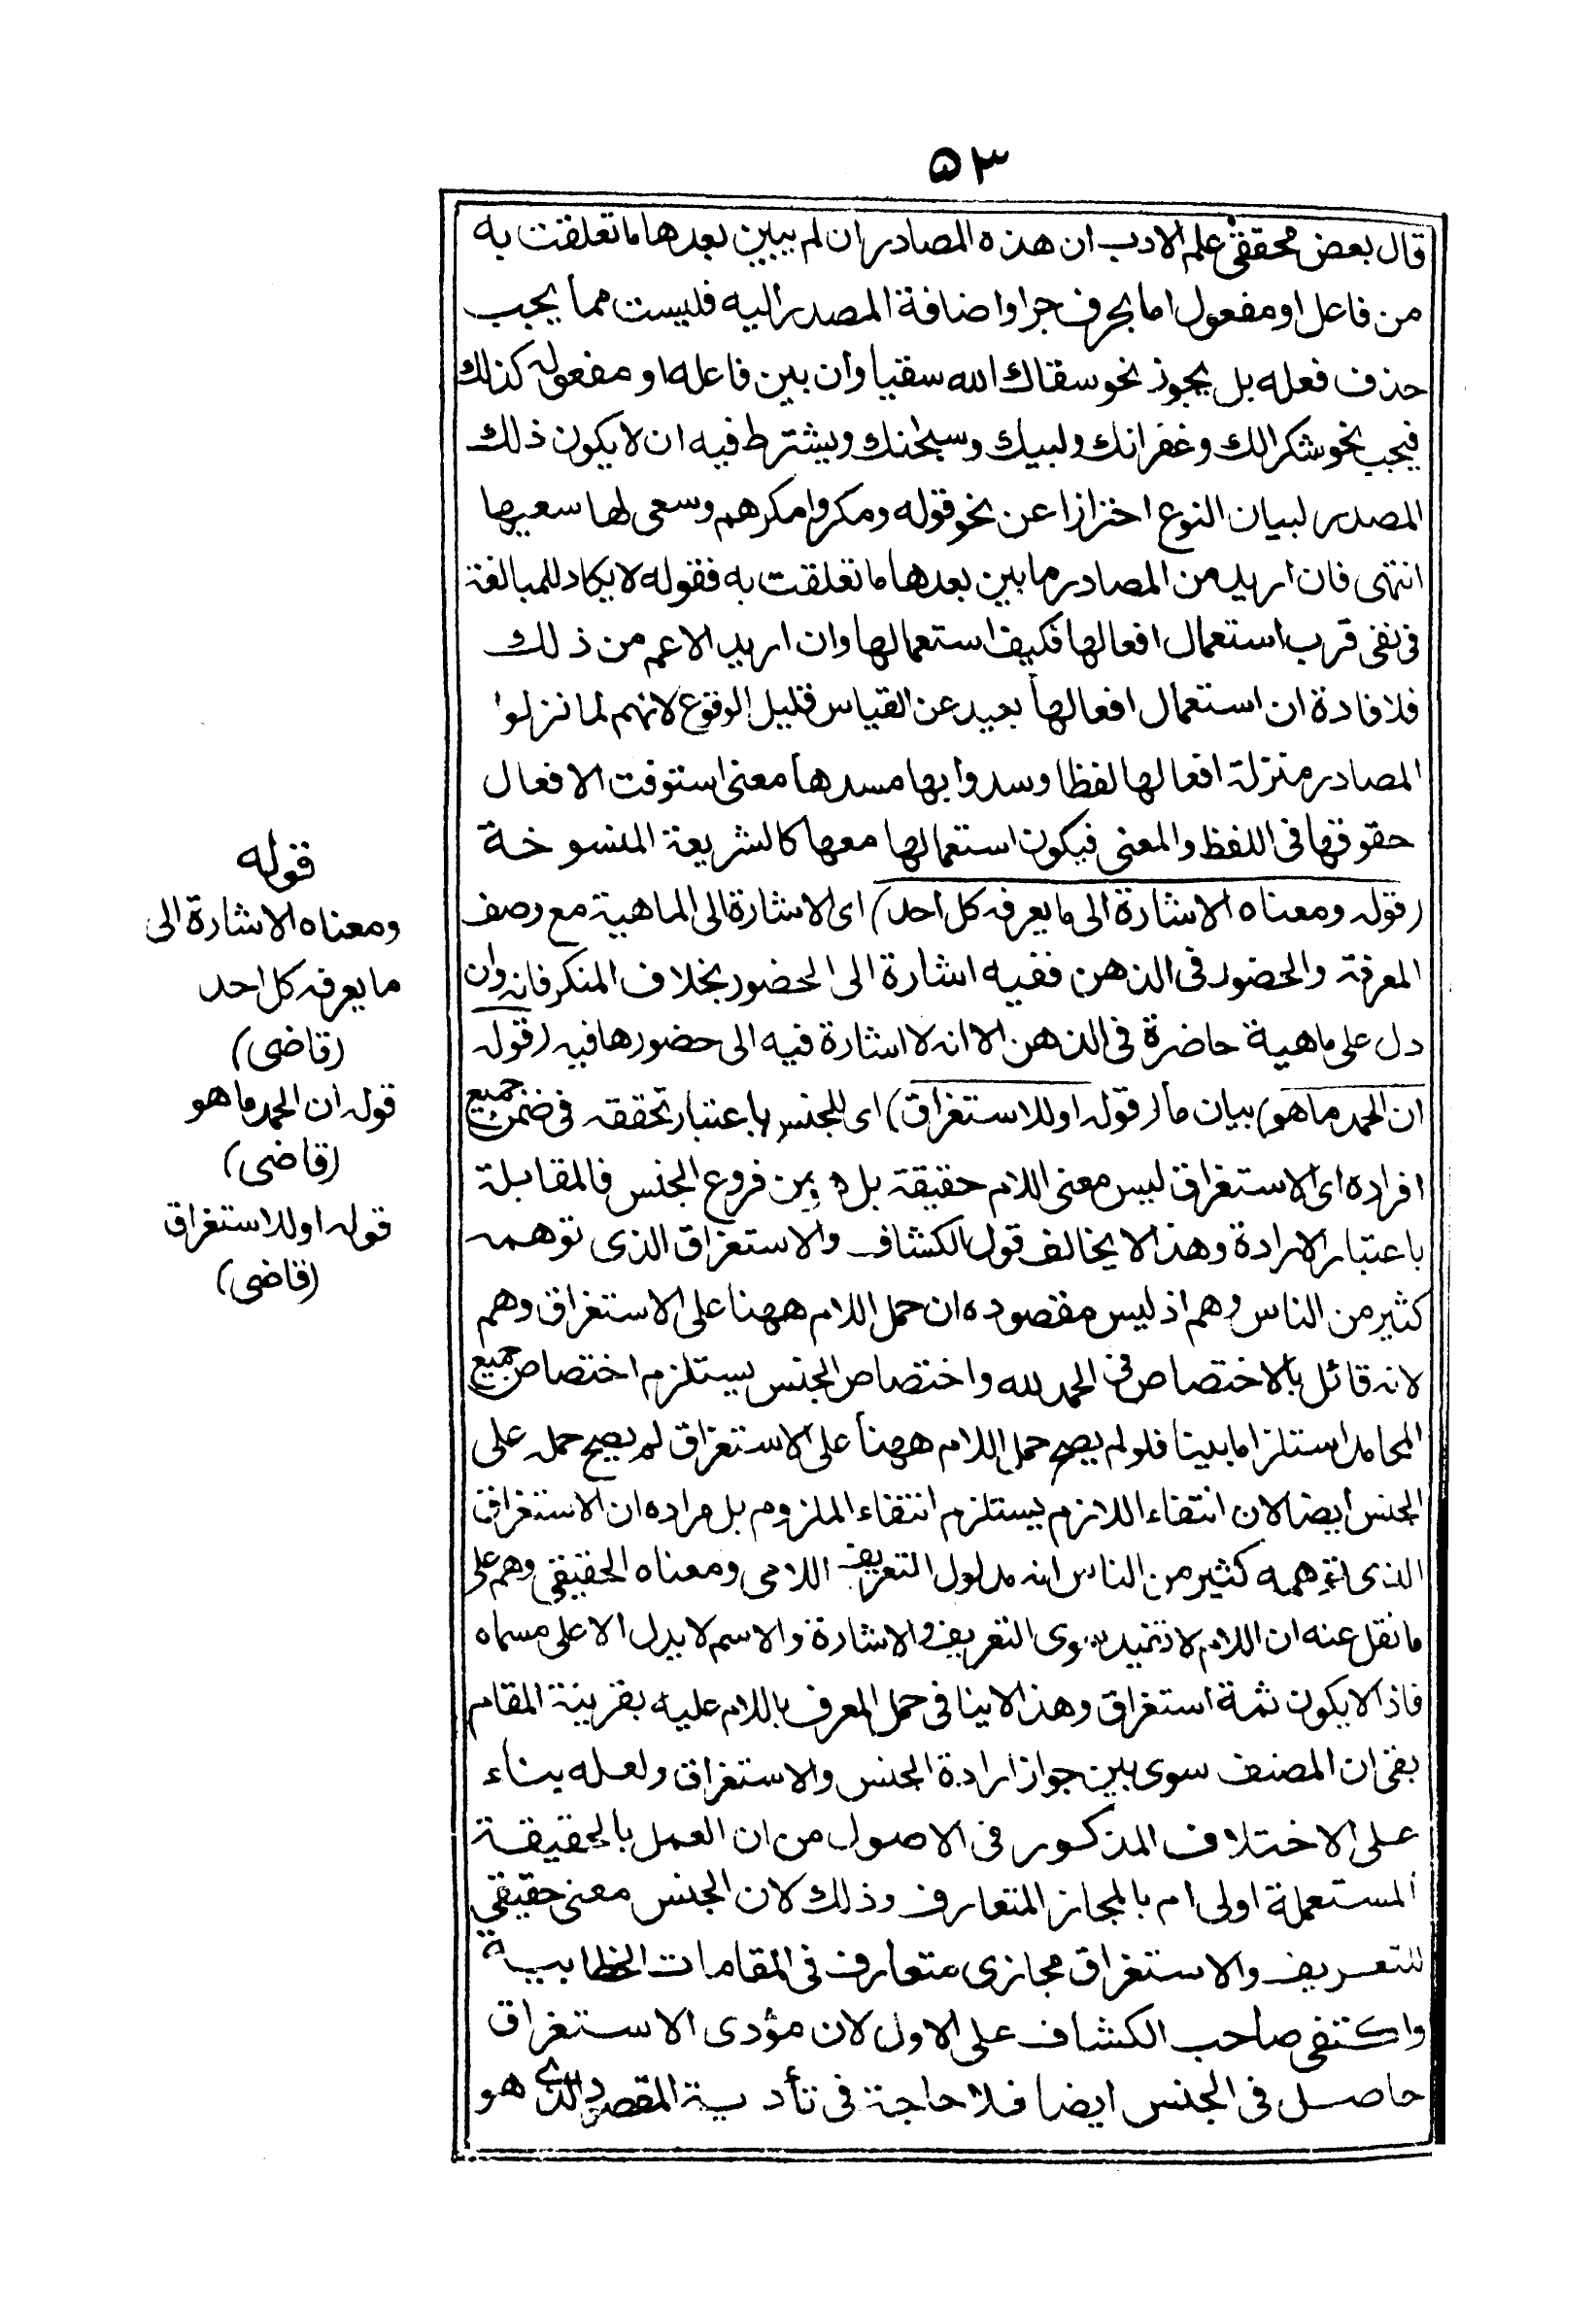 ۵۳
قال بعض محققى علم الادب ان هذه المصادر ان لم يبين بعدها ما تعلقت به
من فاعل او مفعول اما بحرف جر او اضافة المصدر اليه فليست مما يجب
حذف فعله بل يجوز نحو سقاك الله سقيا وان بين فاعله او مفعوله كذلك
فيجب نحو شكرا لك وغفرانك ولبيك وسبحنك ويشترط فيه ان لا يكون ذلك
المصدر لبيان النوع احترازا عن نحو قوله ومكروا مكرهم وسعى لها سعيها
انتهى فان اريد من المصادر ما بين بعدها ما تعلقت به فقوله لا يكاد للمبالغة
فى نفى قرب استعمال افعالها فكيف استعمالها وان اريد الاعم من ذلك
فلافادة ان استعمال افعالها بعيد عن القياس قليل الوقوع لانهم لما نزلوا
المصادر منزلة افعالها لفظا وسدوا بها مسدها معنى استوفت الافعال
حقوقها فى اللفظ والمعنى فيكون استعمالها معها كالشريعة المنسوخة
(قوله ومعناه الاشارة الى ما يعرفه كل احد) اى الاشارة الى الماهية مع وصف
المعرفة والحضور فى الذهن ففيه اشارة الى الحضور بخلاف المنكر فانه وان
دل على ماهية حاضرة فى الذهن الا انه لا اشارة فيه الى حضورها فيه (قوله
ان الحمد ما هو) بيان ما (قوله او للاستغراق) اى للجنس باعتبار تحققه فى ضمن جميع
افراده اى الاستغراق ليس معنى اللام حقيقة بل هو من فروع الجنس فالمقابلة
باعتبار الارادة وهذا لا يخالف قول الكشاف والاستغراق الذى توهمه
كثير من الناس وهم اذ ليس مقصوده ان حمل اللام ههنا على الاستغراق وهم
لانه قائل بالاختصاص فى الحمد لله واختصاص الجنس يستلزم اختصاص جميع
المحامد استلزاما بينا فلو لم يصح حمل اللام ههنا على الاستغراق لم يصح حمله على
الجنس ايضا لان انتفاء اللازم يستلزم انتفاء الملزوم بل مراده ان الاستغراق
الذى توهمه كثير من الناس انه مدلول التعريف اللامى ومعناه الحقيقى وهم على
ما نقل عنه ان اللام لا تفيد سوى التعريف والاشارة والاسم لا يدل الا على مسماه
فاذا لا يكون ثمة استغراق وهذا لا ينافى حمل المعرف باللام عليه بقرينة المقام
بقى ان المصنف سوى بين جواز ارادة الجنس والاستغراق ولعله بناء
على الاختلاف المذكور فى الاصول من ان العمل بالحقيقة
المستعملة اولى ام بالمجاز المتعارف وذلك لان الجنس معنى حقيقى
للتعريف والاستغراق مجازى متعارف فى المقامات الخطابية
واكتفى صاحب الكشاف على الاول لان مؤدى الاستغراق
حاصل فى الجنس ايضا فلا حاجة فى تأدية المقصود الذى هو
قوله
ومعناه الاشارة الى
ما يعرفه كل احد
(قاضى)
قوله ان الحمد ما هو
(قاضى)
قوله او للاستغراق
(قاضى)